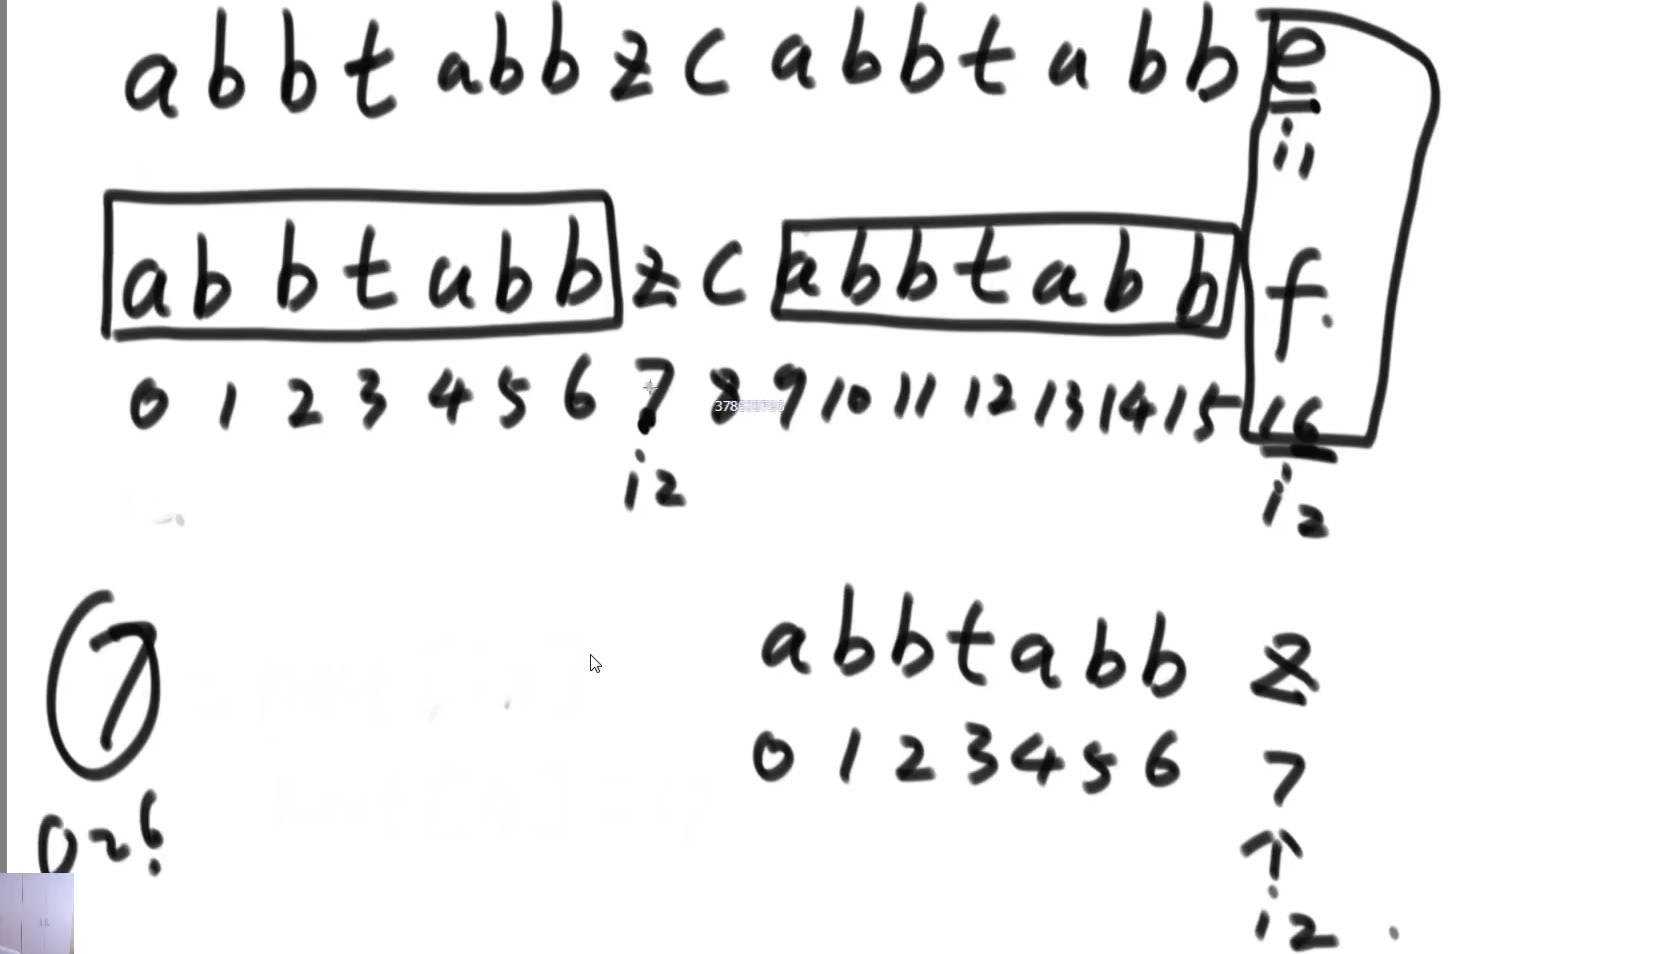 a b b t a b b z c a b b t a b b e
i1
a b b t a b b z c a b b t a b b f
0 1 2 3 4 5 6 7 8 9 10 11 12 13 14 15 16
i2 i2
7
0~6
a b b t a b b z
0 1 2 3 4 5 6 7
↑
i2